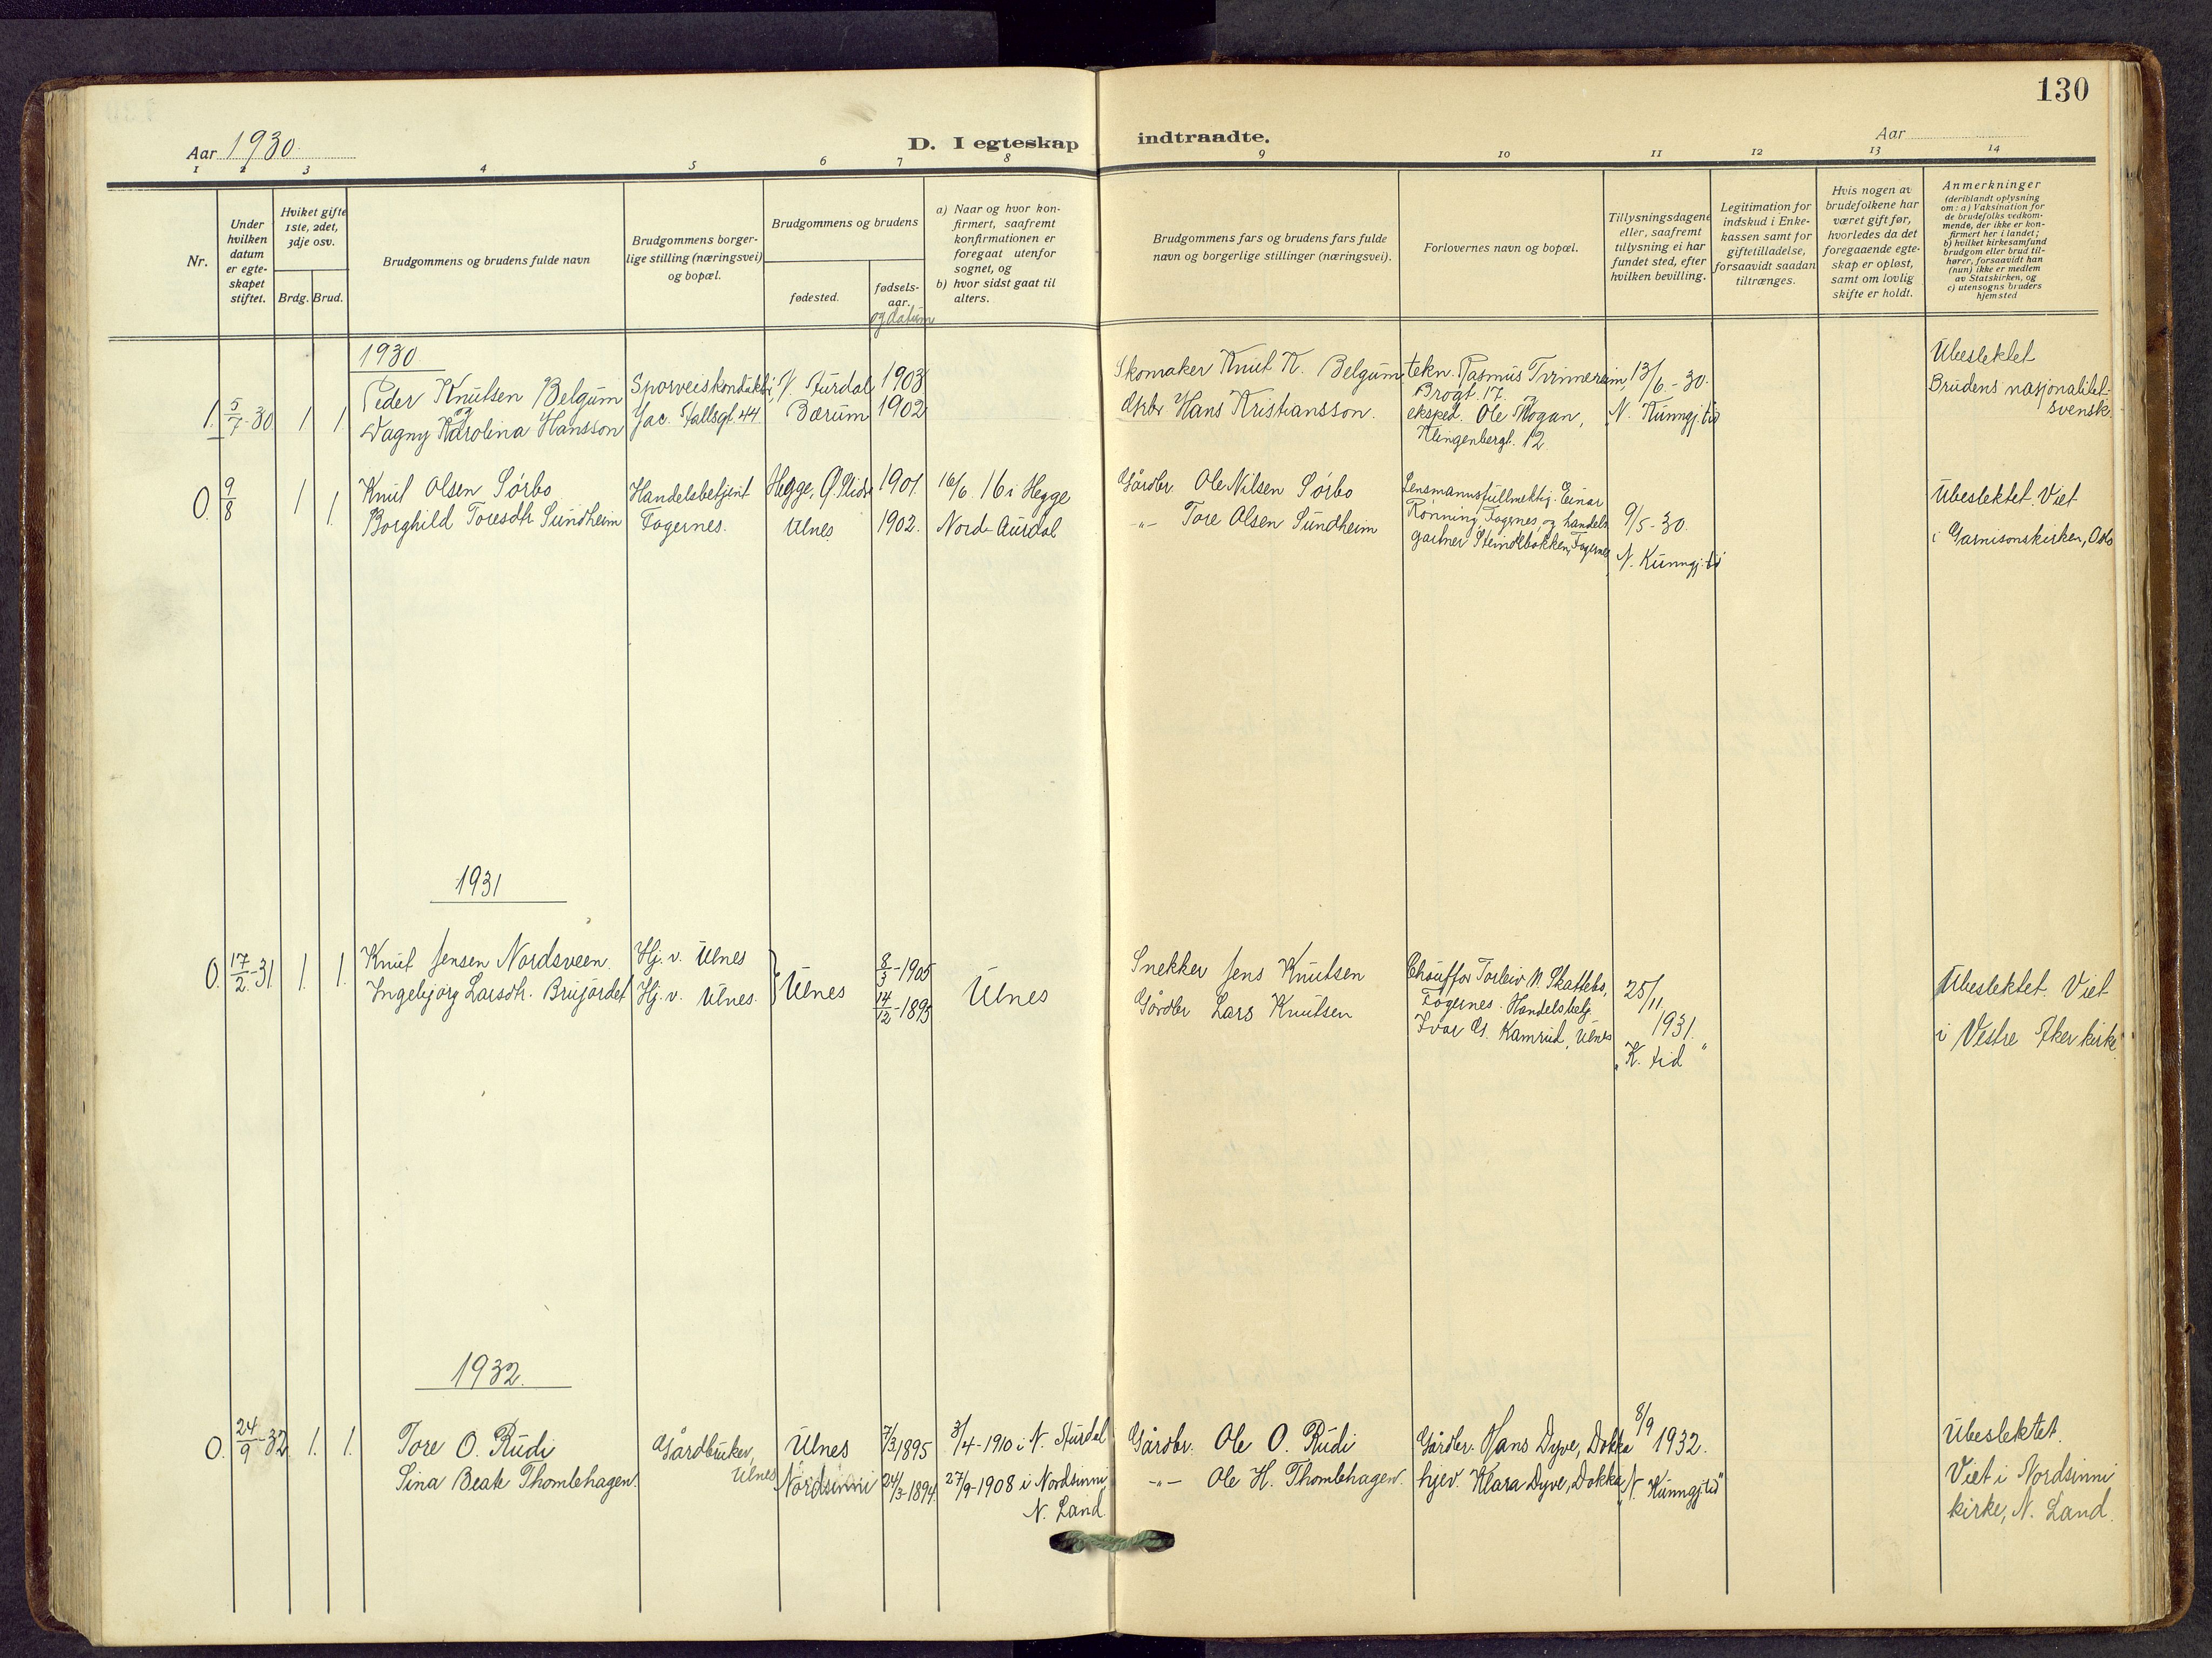 130
Aar 1930.
D. I egteskap indtraadte.
Aar
1 2 3 4 5 6 7 8 9 10 11 12 13 14
Nr.
Under hvilken datum er egte-skapet stiftet.
Hviket gifte 1ste, 2det, 3dje osv.
Brdg. Brud.
Brudgommens og brudens fulde navn
Brudgommens borger-
lige stilling (næringsvei)
og bopæl.
Brudgommens og brudens
fødested.
fødsels-
aar.
og datum
a) Naar og hvor kon-
firmert, saafremt
konfirmationen er
foregaat utenfor
sognet, og
b) hvor sidst gaat til
alters.
Brudgommens fars og brudens fars fulde
navn og borgerlige stillinger (næringsvei).
Forlovernes navn og bopæl.
Tillysningsdagene
eller, saafremt
tillysning ei har
fundet sted, efter
hvilken bevilling.
Legitimation for
indskud i Enke-
kassen samt for
giftetilladelse,
forsaavidt saadan
tiltrænges.
Hvis nogen av
brudefolkene har
været gift før,
hvorledes da det
foregaaende egte-
skap er opløst,
samt om lovlig
skifte er holdt.
Anmerkninger
(deriblandt oplysning
om: a) Vaksination for
de brudefolks vedkom-
mende, der ikke er kon-
firmert her i landet;
b) hvilket kirkesamfund
brudgom eller brud til-
hører, forsaavidt han
(hun) ikke er medlem
av Statskirken, og
c) utensogns bruders
hjemsted
1930
1. 5/7-30 1 1
Peder Knutsen Belgum
og
Dagny Karolina Hansson
Sporveiskonduktør,
Jac. Hallsgt. 44.
N. Aurdal 1903
Bærum 1902
Skomaker Knut K. Belgum
Hans Kristiansson.
tekn. Rasmus
Brogt. 17.
eksped. Ole Mogan,
Klingenbergt. 12
13/6-30.
N. Kunngj. tid
Ubeslektet
Brudens nasjonalitet:
svensk.
0. 9/8 1 1.
Knut Olsen Sørbo
Borghild Toresdtr Sundheim
Handelsbetjent
Fagernes.
Hegge, Ø. Slidre 1901
Ulnes 1902.
16/6 16 i Hegge
Nord-Aurdal
Gårdbr. Ole Nilsen Sørbo
-"- Tore Olsen Sundheim
Lensmannsfullmektig Einar
Rønning, Fagernes, og handels
gartner Steindebakken, Fagernes
9/5-30.
N. Kunngj. tid
Ubeslektet. Viet
i Garnisonskirken, Oslo
1931
0. 17/2-31 1. 1.
Knut Jensen Nordsveen.
Ingebjørg Larsdtr. Brujordet
Hj. v. Ulnes
Hj. v. Ulnes.
Ulnes
8/3-1905
14/12-1895
Ulnes
Snekker Jens Knutsen
Gårdbr Lars Knutsen
Chauffør Torleiv N. Skattebo,
Fagernes. Handelsbetj.
Ivar G. Kamrud, Ulnes
25/11
1931.
"K. tid"
Ubeslektet. Viet
i Vestre Aker kirke
1932.
0. 24/9-32 1. 1.
Tore O. Rudi
Sina Beate Thomlehagen.
Gårdbruker,
Ulnes
Ulnes
Nordsinni
7/3 1895
24/3-1894
3/4-1910 i N. Aurdal
27/9-1908 i Nordsinni
N. Land.
Gårdbr. Ole O. Rudi
-"- Ole H. Thomlehagen.
Gårdbr. Hans Dyve, Dokka
hjev. Klara Dyve, Dokka
8/9 1932.
"N. Kunngj. tid"
Ubeslektet.
Viet i Nordsinni
kirke, N. Land.